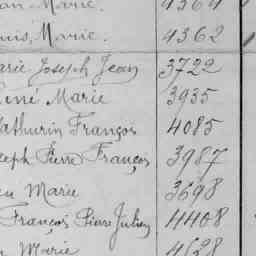 an Marie. 4364
uis, Marie. 4362
arie Joseph Jean 3722
ené Marie 3935
athurin François 4085
seph Pierre François 3987
eu Marie 3698
François Pierre Julien 4408
Marie 4628